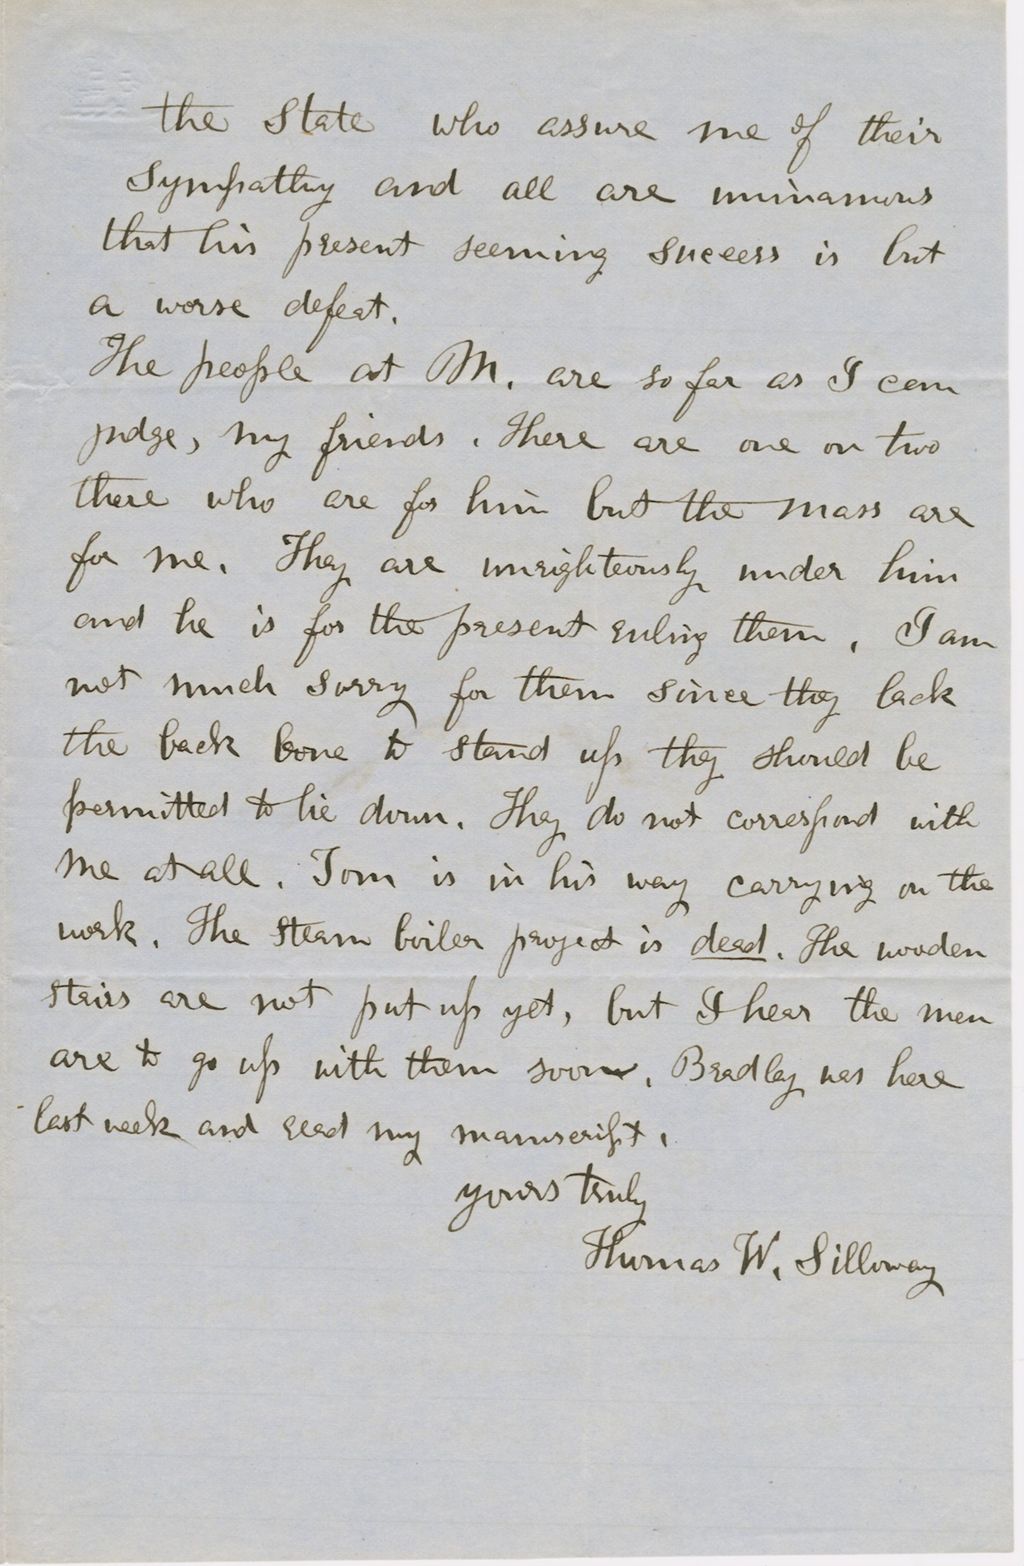 the State who assure me of their
sympathy and all are uninamous
that his present seeming success is but
a worse defeat.
The people at M. are so far as I can
judge, my friends. There are one or two
there who are for him but the mass are
for me. They are unrighteously under him
and he is for the present ruling them. I am
not much sorry for them since they lack
the back bone to stand up they should be
permitted to lie down. They do not correspond with
me at all. Tom is in his way carrying on the
work. The steam boiler project is dead. The wooden
stairs are not put up yet, but I hear the men
are to go up with them soon. Bradley was here
last week and read my manuscript.
yours truly
Thomas W. Silloway